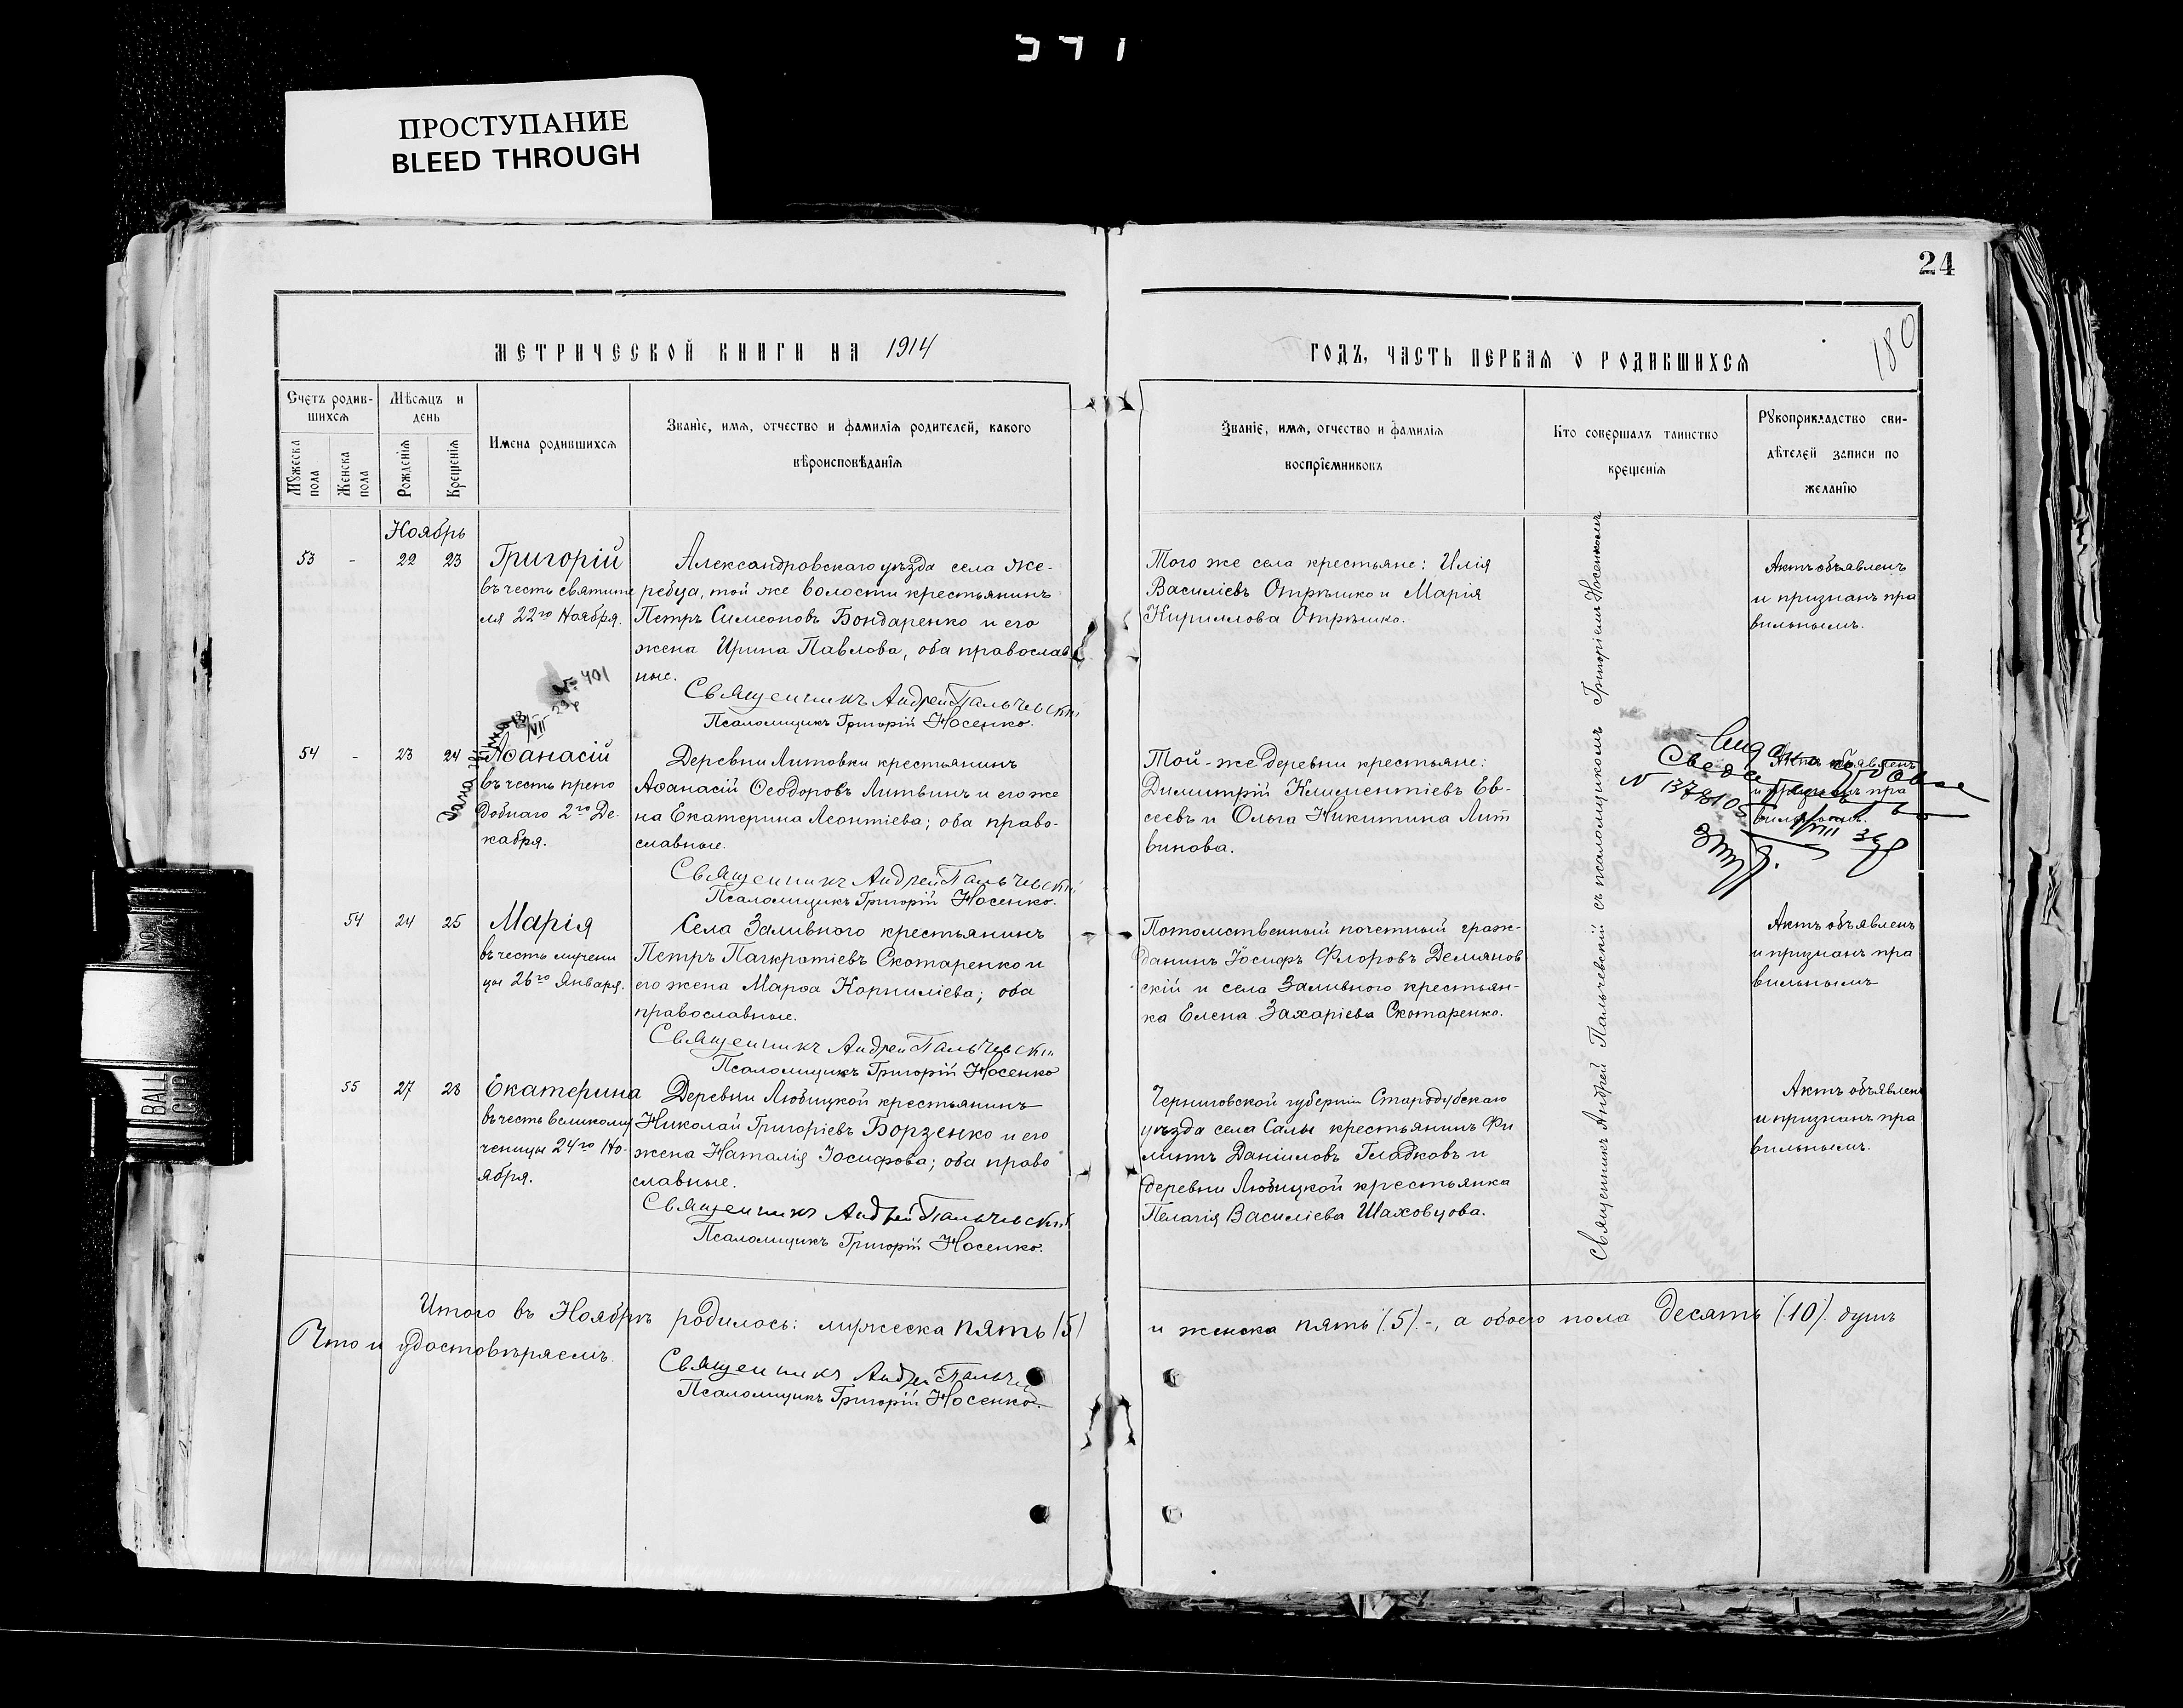 ПРОСТУПАНИЕ
BLEED THROUGH
24
180
МЕТРИЧЕСКОЙ КНИГИ НА 1914
ГОДЪ, ЧАСТЬ ПЕРВАЯ О РОДИВШИХСЯ
Счетъ родив-
шихся
Мужеска
пола
Женска
пола
Мѣсяцъ и
день
Рожденія
Крещенія
Имена родившихся
Званіе, имя, отчество и фамилія родителей, какого
вѣроисповѣданія
Званіе, имя, отчество и фамилія
воспріемниковъ
Кто совершалъ таинство
крещенія
Рукоприкладство сви-
дѣтелей записи по
желанію
Ноябрь
53 - 22 23
Григорій
въ честь святите
ля 22го Ноября.
Александровскаго уѣзда села Же-
ребца, той же волости крестьянинъ
Петръ Симеоновъ Бондаренко и его
жена Ирина Павлова, оба православ
ные.
Священникъ Андрей Пальчевскій
Псаломщикъ Григорій Носенко.
Того же села крестьяне: Илія
Василіевъ Отрѣшко и Марія
Кириллова Отрѣшко.
Актъ объявленъ
и признанъ пра
вильнымъ.
№ 401
54 - 23 24
Аѳанасій
въ честь препо
добнаго 2го Де-
кабря.
Деревни Литовки крестьянинъ
Аѳанасій Ѳеодоровъ Литвинъ и его же
на Екатерина Леонтіева; оба право-
славные.
Священникъ Андрей Пальчевскій
Псаломщикъ Григорій Носенко.
Той-же деревни крестьяне:
Димитрій Климентіевъ Ев-
сеевъ и Ольга Никитина Лит
винова.
Актъ объявленъ
и признанъ пра
вильнымъ.
54 24 25
Марія
въ честь мучени
цы 26го Января.
Села Заливного крестьянинъ
Петръ Панкратіевъ Скотаренко и
его жена Марѳа Корниліева; оба
православные.
Священникъ Андрей Пальчевскій
Псаломщикъ Григорій Носенко
Потомственный почетный граж-
данинъ Іосифъ Флоровъ Демянов
скій и села Заливного крестьян-
ка Елена Захаріева Скотаренко.
Актъ объявленъ
и признанъ пра
вильнымъ
55 27 28
Екатерина
въ честь великому
ченицы 24го Но-
ября.
Деревни Любицкой крестьянинъ
Николай Григоріевъ Борзенко и его
жена Наталія Іосифова; оба право
славные.
Священникъ Андрей Пальчевскій
Псаломщикъ Григорій Носенко.
Черниговской губерніи Стародубскаго
уѣзда села Салы крестьянинъ Фи
липпъ Даніиловъ Гладковъ и
деревни Любицкой крестьянка
Пелагія Василіева Шаховцова.
Актъ объявленъ
и признанъ пра
вильнымъ.
Священникъ Андрей Пальчевскій съ псаломщикомъ Григоріемъ Носенкомъ
Итого въ Ноябрѣ родилось: мужеска пять (5)
и женска пять (5) -, а обоего пола десять (10) душъ
Что и удостовѣряемъ.
Священникъ Андрей Пальчев
Псаломщикъ Григорій Носенко.